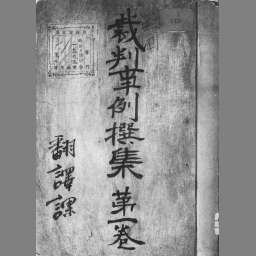 裁判事例撰集 第一卷
翻譯課